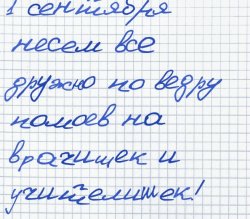 1 сентября
несем все
дружно по ведру
помоев на
врачишек и
учителишек!